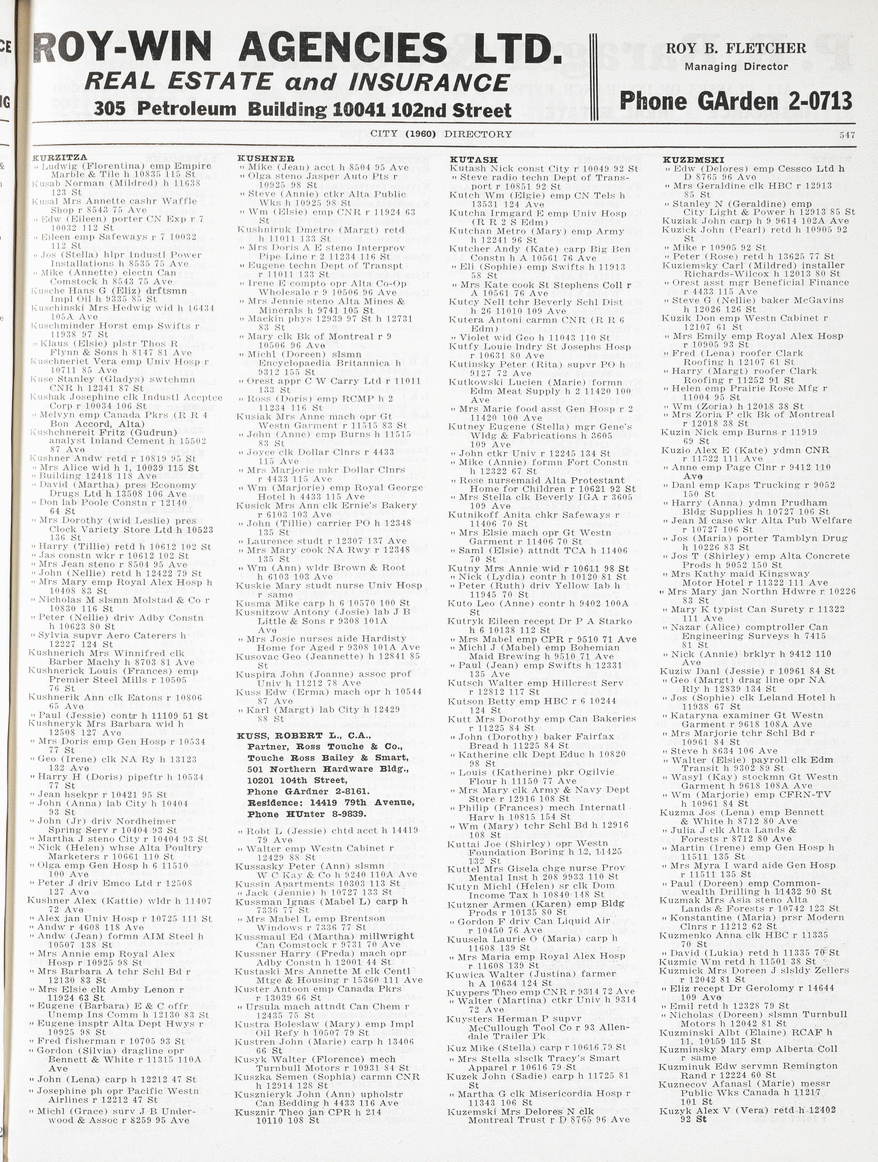 ROY-WIN AGENCIES LTD.
REAL ESTATE and INSURANCE
305 Petroleum Building 10041 102nd Street
ROY B. FLETCHER
Managing Director
Phone GArden 2-0713
CITY (1960) DIRECTORY
547
KURZITZA
" Ludwig (Florentina) emp Empire
Marble & Tile h 10835 115 St
Kusab Norman (Mildred) h 11638
123 St
Kusal Mrs Annette cashr Waffle
Shop r 8543 75 Ave
" Edw (Eileen) porter CN Exp r 7
10032 112 St
" Eileen emp Safeways r 7 10032
112 St
" Jos (Stella) hlpr Industl Power
Installations h 8535 75 Ave
" Mike (Annette) electn Can
Comstock h 8543 75 Ave
Kusche Hans G (Eliz) drftsmn
Impl Oil h 9335 85 St
Kuschinski Mrs Hedwig wid h 16434
105A Ave
Kuschminder Horst emp Swifts r
11938 97 St
" Klaus (Elsie) plstr Thos R
Flynn & Sons h 8147 81 Ave
Kuschneriet Vera emp Univ Hosp r
10711 85 Ave
Kuse Stanley (Gladys) swtchmn
CNR h 12341 87 St
Kushak Josephine clk Industl Accptce
Corp r 10034 106 St
" Melvyn emp Canada Pkrs (R R 4
Bon Accord, Alta)
Kushchnereit Fritz (Gudrun)
analyst Inland Cement h 15502
87 Ave
Kushner Andw retd r 10819 95 St
" Mrs Alice wid h 1, 10039 115 St
" Building 12418 118 Ave
" David (Martha) pres Economy
Drugs Ltd h 13508 106 Ave
" Don lab Poole Constn r 12140
64 St
" Mrs Dorothy (wid Leslie) pres
Clock Variety Store Ltd h 10523
136 St
" Harry (Tillie) retd h 10612 102 St
" Jas constn wkr r 10612 102 St
" Mrs Jean steno r 8504 95 Ave
" John (Nellie) retd h 12422 79 St
" Mrs Mary emp Royal Alex Hosp h
10408 83 St
" Nicholas M slsmn Molstad & Co r
10830 116 St
" Peter (Nellie) driv Adby Constn
h 10623 80 St
" Sylvia supvr Aero Caterers h
12227 124 St
Kushnerich Mrs Winnifred clk
Barber Machy h 8703 81 Ave
Kushnerick Louis (Frances) emp
Premier Steel Mills r 10505
76 St
Kushnerik Ann clk Eatons r 10806
65 Ave
" Paul (Jessie) contr h 11109 51 St
Kushneryk Mrs Barbara wid h
12508 127 Ave
" Mrs Doris emp Gen Hosp r 10534
77 St
" Geo (Irene) clk NA Ry h 13123
132 Ave
" Harry H (Doris) pipeftr h 10534
77 St
" Jean hsekpr r 10421 95 St
" John (Anna) lab City h 10404
93 St
" John (Jr) driv Nordheimer
Spring Serv r 10404 93 St
" Martha J steno City r 10404 93 St
" Nick (Helen) whse Alta Poultry
Marketers r 10661 110 St
" Olga emp Gen Hosp h 6 11510
100 Ave
" Peter J driv Emco Ltd r 12508
127 Ave
Kushner Alex (Kattie) wldr h 11407
72 Ave
" Alex jan Univ Hosp r 10725 111 St
" Andw r 4608 118 Ave
" Andw (Jean) formn AIM Steel h
10507 138 St
" Mrs Annie emp Royal Alex
Hosp r 10925 98 St
" Mrs Barbara A tchr Schl Bd r
12130 83 St
" Mrs Elsie clk Amby Lenon r
11924 63 St
" Eugene (Barbara) E & C offr
Unemp Ins Comm h 12130 83 St
" Eugene insptr Alta Dept Hwys r
10925 98 St
" Fred fisherman r 10705 93 St
" Gordon (Silvia) dragline opr
Bennett & White r 11315 110A
Ave
" John (Lena) carp h 12212 47 St
" Josephine ph opr Pacific Westn
Airlines r 12212 47 St
" Michl (Grace) surv J B Under-
wood & Assoc r 8259 95 Ave
KUSHNER
" Mike (Jean) acct h 8504 95 Ave
" Olga steno Jasper Auto Pts r
10925 98 St
" Steve (Annie) ctkr Alta Public
Wks h 10925 98 St
" Wm (Elsie) emp CNR r 11924 63
St
Kushniruk Dmetro (Margt) retd
h 11011 133 St
" Mrs Doris A E steno Interprov
Pipe Line r 2 11234 116 St
" Eugene techn Dept of Transpt
r 11011 133 St
" Irene E compto opr Alta Co-Op
Wholesale r 9 10506 96 Ave
" Mrs Jennie steno Alta Mines &
Minerals h 9741 105 St
" Mackin phys 12939 97 St h 12731
83 St
" Mary clk Bk of Montreal r 9
10506 96 Ave
" Michl (Doreen) slsmn
Encyclopaedia Britannica h
9312 155 St
" Orest appr C W Carry Ltd r 11011
133 St
" Ross (Doris) emp RCMP h 2
11234 116 St
Kusiak Mrs Anne mach opr Gt
Westn Garment r 11515 83 St
" John (Anne) emp Burns h 11515
83 St
" Joyce clk Dollar Clnrs r 4433
115 Ave
" Mrs Marjorie mkr Dollar Clnrs
r 4433 115 Ave
" Wm (Marjorie) emp Royal George
Hotel h 4433 115 Ave
Kusick Mrs Ann clk Ernie's Bakery
r 6103 103 Ave
" John (Tillie) carrier PO h 12348
135 St
" Laurence studt r 12307 137 Ave
" Mrs Mary cook NA Rwy r 12348
135 St
" Wm (Ann) wldr Brown & Root
h 6103 103 Ave
Kuskie Mary studt nurse Univ Hosp
r same
Kusma Mike carp h 6 10570 100 St
Kusnitzow Antony (Josie) lab J B
Little & Sons r 9308 101A
Ave
" Mrs Josie nurses aide Hardisty
Home for Aged r 9308 101A Ave
Kusovac Geo (Jeannette) h 12841 85
St
Kuspira John (Joanne) assoc prof
Univ h 11212 78 Ave
Kuss Edw (Erma) mach opr h 10544
87 Ave
" Karl (Margt) lab City h 12429
88 St
KUSS, ROBERT L., C.A.,
Partner, Ross Touche & Co.,
Touche Ross Bailey & Smart,
501 Northern Hardware Bldg.,
10201 104th Street,
Phone GArdner 2-8161.
Residence: 14419 79th Avenue,
Phone HUnter 8-9839.
" Robt L (Jessie) chtd acct h 14419
79 Ave
" Walter emp Westn Cabinet r
12429 88 St
Kussasky Peter (Ann) slsmn
W C Kay & Co h 9240 110A Ave
Kussin Apartments 10303 113 St
" Jack (Jennie) h 10727 133 St
Kussman Ignas (Mabel L) carp h
7336 77 St
" Mrs Mabel L emp Brentson
Windows r 7336 77 St
Kussmaul Ed (Martha) millwright
Can Comstock r 9731 70 Ave
Kussner Harry (Freda) mach opr
Adby Constn h 12001 44 St
Kustaski Mrs Annette M clk Centl
Mtge & Housing r 15360 111 Ave
Kuster Antoon emp Canada Pkrs
r 13039 66 St
" Ursula mach attndt Can Chem r
12435 75 St
Kustra Boleslaw (Mary) emp Impl
Oil Refy h 10507 79 St
Kustren John (Marie) carp h 13406
66 St
Kusyk Walter (Florence) mech
Turnbull Motors r 10931 84 St
Kuszka Semen (Sophia) carmn CNR
h 12914 128 St
Kusznieryk John (Ann) upholstr
Can Bedding h 4433 116 Ave
Kusznir Theo jan CPR h 214
10110 108 St
KUTASH
Kutash Nick const City r 10049 92 St
" Steve radio techn Dept of Trans-
port r 10851 92 St
Kutch Wm (Elgie) emp CN Tels h
13531 124 Ave
Kutcha Irmgard E emp Univ Hosp
(R R 2 S Edm)
Kutchan Metro (Mary) emp Army
h 12241 96 St
Kutcher Andy (Kate) carp Big Ben
Constn h A 10561 76 Ave
" Eli (Sophie) emp Swifts h 11913
58 St
" Mrs Kate cook St Stephens Coll r
A 10561 76 Ave
Kutey Nell tchr Beverly Schl Dist
h 26 11010 109 Ave
Kutera Antoni carmn CNR (R R 6
Edm)
" Violet wid Geo h 11043 110 St
Kutfy Louie Indry St Josephs Hosp
r 10631 80 Ave
Kutinsky Peter (Rita) supvr PO h
9127 72 Ave
Kutkowski Lucien (Marie) formn
Edm Meat Supply h 2 11420 100
Ave
" Mrs Marie food asst Gen Hosp r 2
11420 100 Ave
Kutney Eugene (Stella) mgr Gene's
Wldg & Fabrications h 3605
109 Ave
" John ctkr Univ r 12245 134 St
" Mike (Annie) formn Fort Constn
h 12322 67 St
" Rose nursemaid Alta Protestant
Home for Children r 10621 92 St
" Mrs Stella clk Beverly IGA r 3605
109 Ave
Kutnikoff Anita chkr Safeways r
11406 70 St
" Mrs Elsie mach opr Gt Westn
Garment r 11406 70 St
" Saml (Elsie) attndt TCA h 11406
70 St
Kutny Mrs Annie wid r 10611 98 St
" Nick (Lydia) contr h 10120 81 St
" Peter (Ruth) driv Yellow lab h
11945 70 St
Kuto Leo (Anne) contr h 9402 100A
St
Kutryk Eileen recept Dr P A Starko
h 6 10138 112 St
" Mrs Mabel emp CPR r 9510 71 Ave
" Michl J (Mabel) emp Bohemian
Maid Brewing h 9510 71 Ave
" Paul (Jean) emp Swifts h 12331
135 Ave
Kutsch Walter emp Hillcrest Serv
r 12812 117 St
Kutson Betty emp HBC r 6 10244
124 St
Kutt Mrs Dorothy emp Can Bakeries
r 11225 84 St
" John (Dorothy) baker Fairfax
Bread h 11225 84 St
" Katherine clk Dept Educ h 10820
98 St
" Louis (Katherine) pkr Ogilvie
Flour h 11150 77 Ave
" Mrs Mary clk Army & Navy Dept
Store r 12916 108 St
" Philip (Frances) mech Internatl
Harv h 10815 154 St
" Wm (Mary) tchr Schl Bd h 12916
108 St
Kuttai Joe (Shirley) opr Westn
Foundation Boring h 12, 11425
132 St
Kuttel Mrs Gisela chge nurse Prov
Mental Inst h 208 9933 110 St
Kutyn Michl (Helen) sr clk Dom
Income Tax h 10840 148 St
Kutzner Armen (Karen) emp Bldg
Prods r 10135 80 St
" Gordon F driv Can Liquid Air
r 10450 76 Ave
Kuusela Laurie O (Maria) carp h
11608 139 St
" Mrs Maria emp Royal Alex Hosp
r 11608 139 St
Kuwica Walter (Justina) farmer
h A 10634 124 St
Kuypers Theo emp CNR r 9314 72 Ave
" Walter (Martina) ctkr Univ h 9314
72 Ave
Kuysters Herman P supvr
McCullough Tool Co r 93 Allen-
dale Trailer Pk
Kuz Mike (Stella) carp r 10616 79 St
" Mrs Stella slsclk Tracy's Smart
Apparel r 10616 79 St
Kuzek John (Sadie) carp h 11725 81
St
" Martha G clk Misericordia Hosp r
11343 106 St
Kuzemski Mrs Delores N clk
Montreal Trust r D 8765 96 Ave
KUZEMSKI
" Edw (Delores) emp Cessco Ltd h
D 8765 96 Ave
" Mrs Geraldine clk HBC r 12913
85 St
" Stanley N (Geraldine) emp
City Light & Power h 12913 85 St
Kuziak John carp h 9 9614 102A Ave
Kuzick John (Pearl) retd h 10905 92
St
" Mike r 10905 92 St
" Peter (Rose) retd h 13625 77 St
Kuziemsky Carl (Mildred) installer
Richards-Wilcox h 12013 80 St
" Orest asst mgr Beneficial Finance
r 4433 115 Ave
" Steve G (Nellie) baker McGavins
h 12026 126 St
Kuzik Don emp Westn Cabinet r
12107 61 St
" Mrs Emily emp Royal Alex Hosp
r 10905 93 St
" Fred (Lena) roofer Clark
Roofing h 12107 61 St
" Harry (Margt) roofer Clark
Roofing r 11252 91 St
" Helen emp Prairie Rose Mfg r
11004 95 St
" Wm (Zoria) h 12018 38 St
" Mrs Zoria P clk Bk of Montreal
r 12018 38 St
Kuzin Nick emp Burns r 11919
69 St
Kuzio Alex E (Kate) ydmn CNR
r 11322 111 Ave
" Anne emp Page Clnr r 9412 110
Ave
" Danl emp Kaps Trucking r 9052
150 St
" Harry (Anna) ydmn Prudham
Bldg Supplies h 10727 106 St
" Jean M case wkr Alta Pub Welfare
r 10727 106 St
" Jos (Maria) porter Tamblyn Drug
h 10226 83 St
" Jos T (Shirley) emp Alta Concrete
Prods h 9052 150 St
" Mrs Kathy maid Kingsway
Motor Hotel r 11322 111 Ave
" Mrs Mary jan Northn Hdwre r 10226
83 St
" Mary K typist Can Surety r 11322
111 Ave
" Nazar (Alice) comptroller Can
Engineering Surveys h 7415
81 St
" Nick (Annie) brklyr h 9412 110
Ave
Kuziw Danl (Jessie) r 10961 84 St
" Geo (Margt) drag line opr NA
Rly h 12839 134 St
" Jos (Sophie) clk Leland Hotel h
11938 67 St
" Kataryna examiner Gt Westn
Garment r 9618 108A Ave
" Mrs Marjorie tchr Schl Bd r
10961 84 St
" Steve h 8634 106 Ave
" Walter (Elsie) payroll clk Edm
Transit h 9302 89 St
" Wasyl (Kay) stockmn Gt Westn
Garment h 9618 108A Ave
" Wm (Marjorie) emp CFRN-TV
h 10961 84 St
Kuzma Jos (Lena) emp Bennett
& White h 8712 80 Ave
" Julia J clk Alta Lands &
Forests r 8712 80 Ave
" Martin (Irene) emp Gen Hosp h
11511 135 St
" Mrs Myra I ward aide Gen Hosp
r 11511 135 St
" Paul (Doreen) emp Common-
wealth Drilling h 11432 90 St
Kuzmak Mrs Asia steno Alta
Lands & Forests r 10742 123 St
" Konstantine (Maria) prsr Modern
Clnrs h 11212 62 St
Kuzmenko Anna clk HBC r 11335
70 St
" David (Lukia) retd h 11335 70 St
Kuzmic Wm retd h 11501 38 St
Kuzmick Mrs Doreen J slsldy Zellers
r 12042 81 St
" Eliz recept Dr Gerolomy r 14644
109 Ave
" Emil retd h 12328 79 St
" Nicholas (Doreen) slsmn Turnbull
Motors h 12042 81 St
Kuzminski Albt (Elaine) RCAF h
11, 10159 115 St
Kuzminsky Mary emp Alberta Coll
r same
Kuzminuk Edw servmn Remington
Rand r 12224 60 St
Kuznecov Afanasi (Marie) messr
Public Wks Canada h 11217
101 St
Kuzyk Alex V (Vera) retd h 12402
92 St